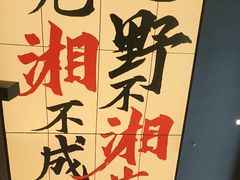 野不湘
湘不成